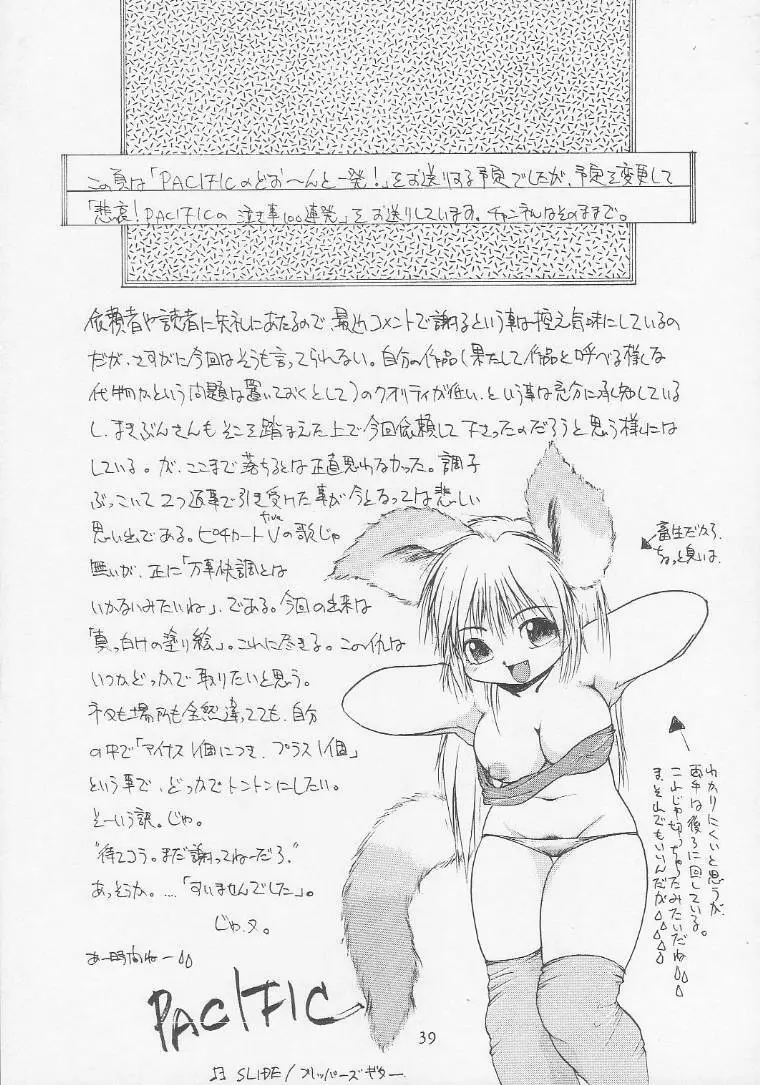 この頁は「PACIFICのどお〜んと一発！」をお送りする予定でしたが、予定を変更して
「悲哀！PACIFICの泣き事100連発」をお送りしています。チャンネルはそのままで。
依頼者や読者に失礼にあたるので、最近コメントで謝るという事は控え気味にしているの
だが、さすがに今回はそうも言ってられない。自分の作品(果たして作品と呼べる様な
代物かという問題は置いておくとして)のクオリティが低い、という事は充分に承知している
し、まきぶんさんもそこを踏まえた上で今回依頼して下さったのだろうと思う様には
している。が、ここまで落ちるとは正直思わなかった。調子
ぶっこいて2つ返事で引き受けた事が今となっては悲しい
思い出である。ピチカートV(five)の歌じゃ
無いが、正に「万事快調とは
いかないみたいね」、である。今回の出来は
「真っ白けの塗り絵」。これに尽きる。この仇は
いつかどっかで取りたいと思う。
ネタも場所も全然違ってても、自分
の中で「マイナス1個につき、プラス1個」
という事で、どっかでトントンにしたい。
そーいう訳。じゃ。
"待てコラ。まだ謝ってねーだろ"
あっそうか。…「すいませんでした」。
じゃ、又。
PACIFIC
畜生だから
ちょっと臭いは、
わかりにくいと思うが
両手は後ろに回している。
これじゃ切っちゃったみたいだね
ま、それでもいいんだが
39
SLIDE/フリッパーズギター